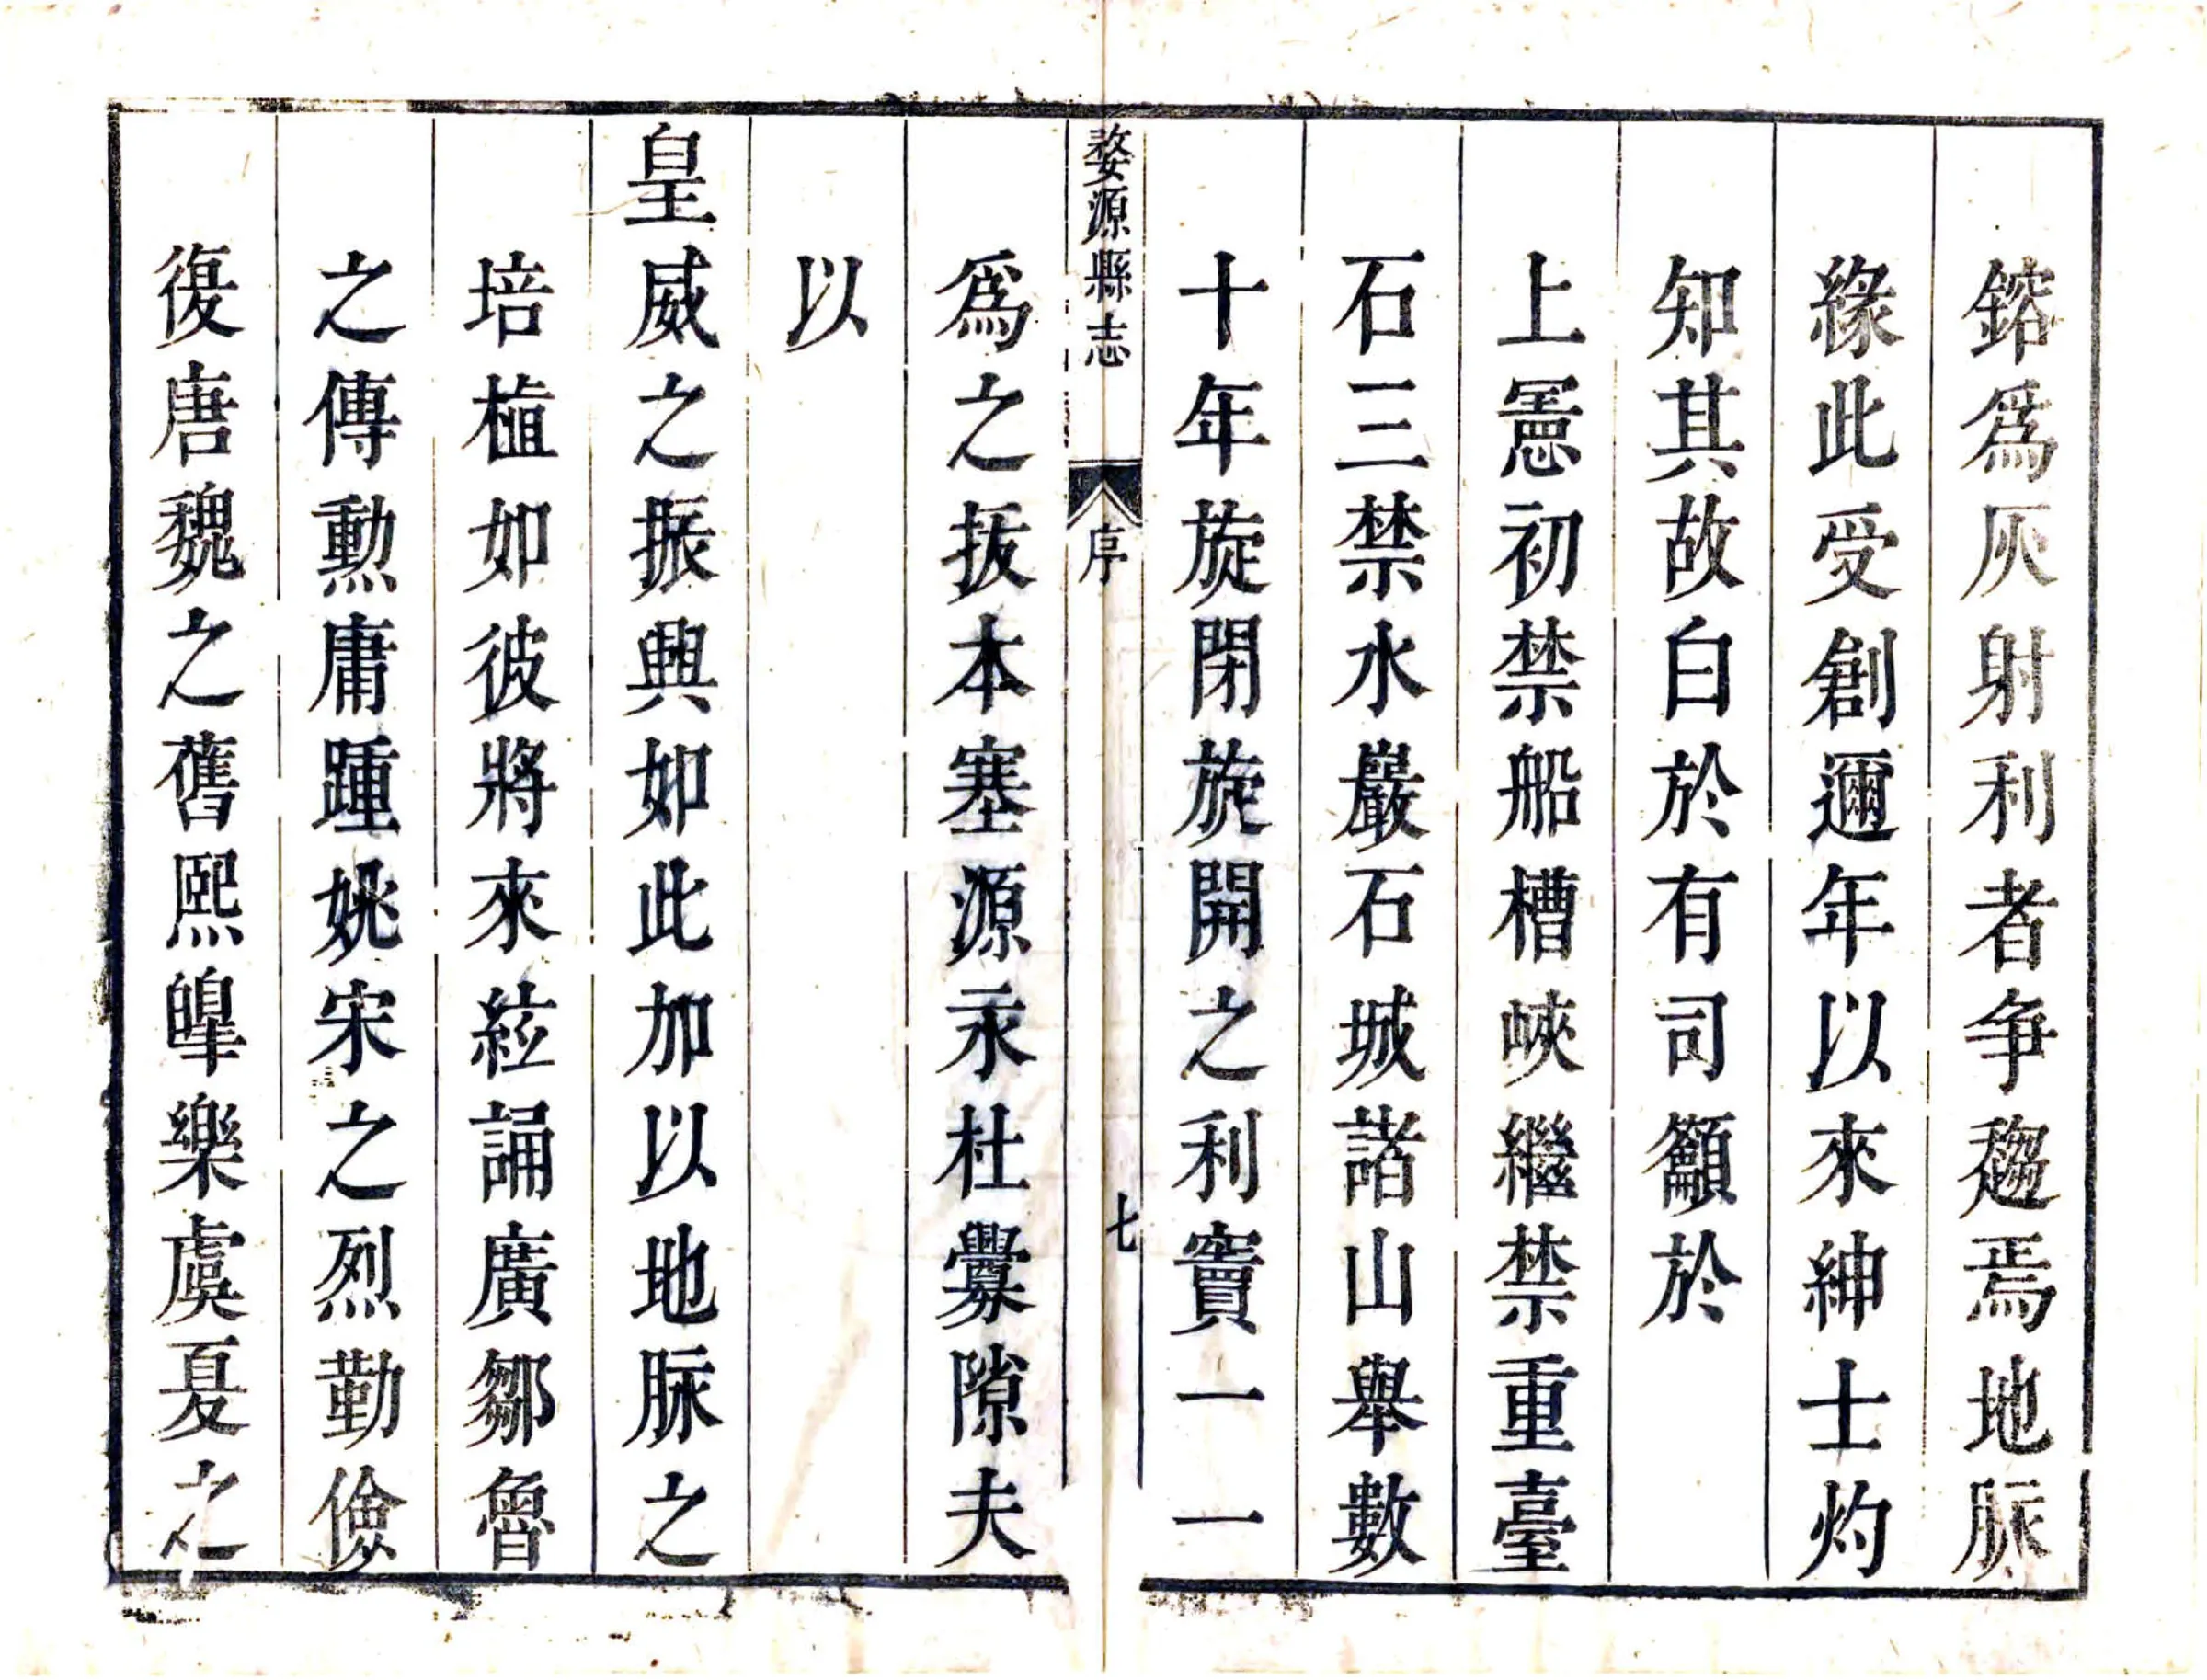 鎔爲灰射利者争趨焉地脈
緣此受創邇年以來紳士灼
知其故白於有司籲於
上憲初禁船槽峽繼禁重臺
石三禁水巖石城諸山舉數
十年旋閉旋開之利竇一一
婺源縣志
序
七
爲之拔本塞源永杜釁隙夫
以
皇威之振興如此加以地脈之
培植如彼將來絃誦廣鄒魯
之傳勲庸踵姚宋之烈勤儉
復唐魏之舊熙皥樂虞夏之